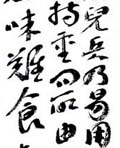 兒兵乃易用
持重而所由
味難食